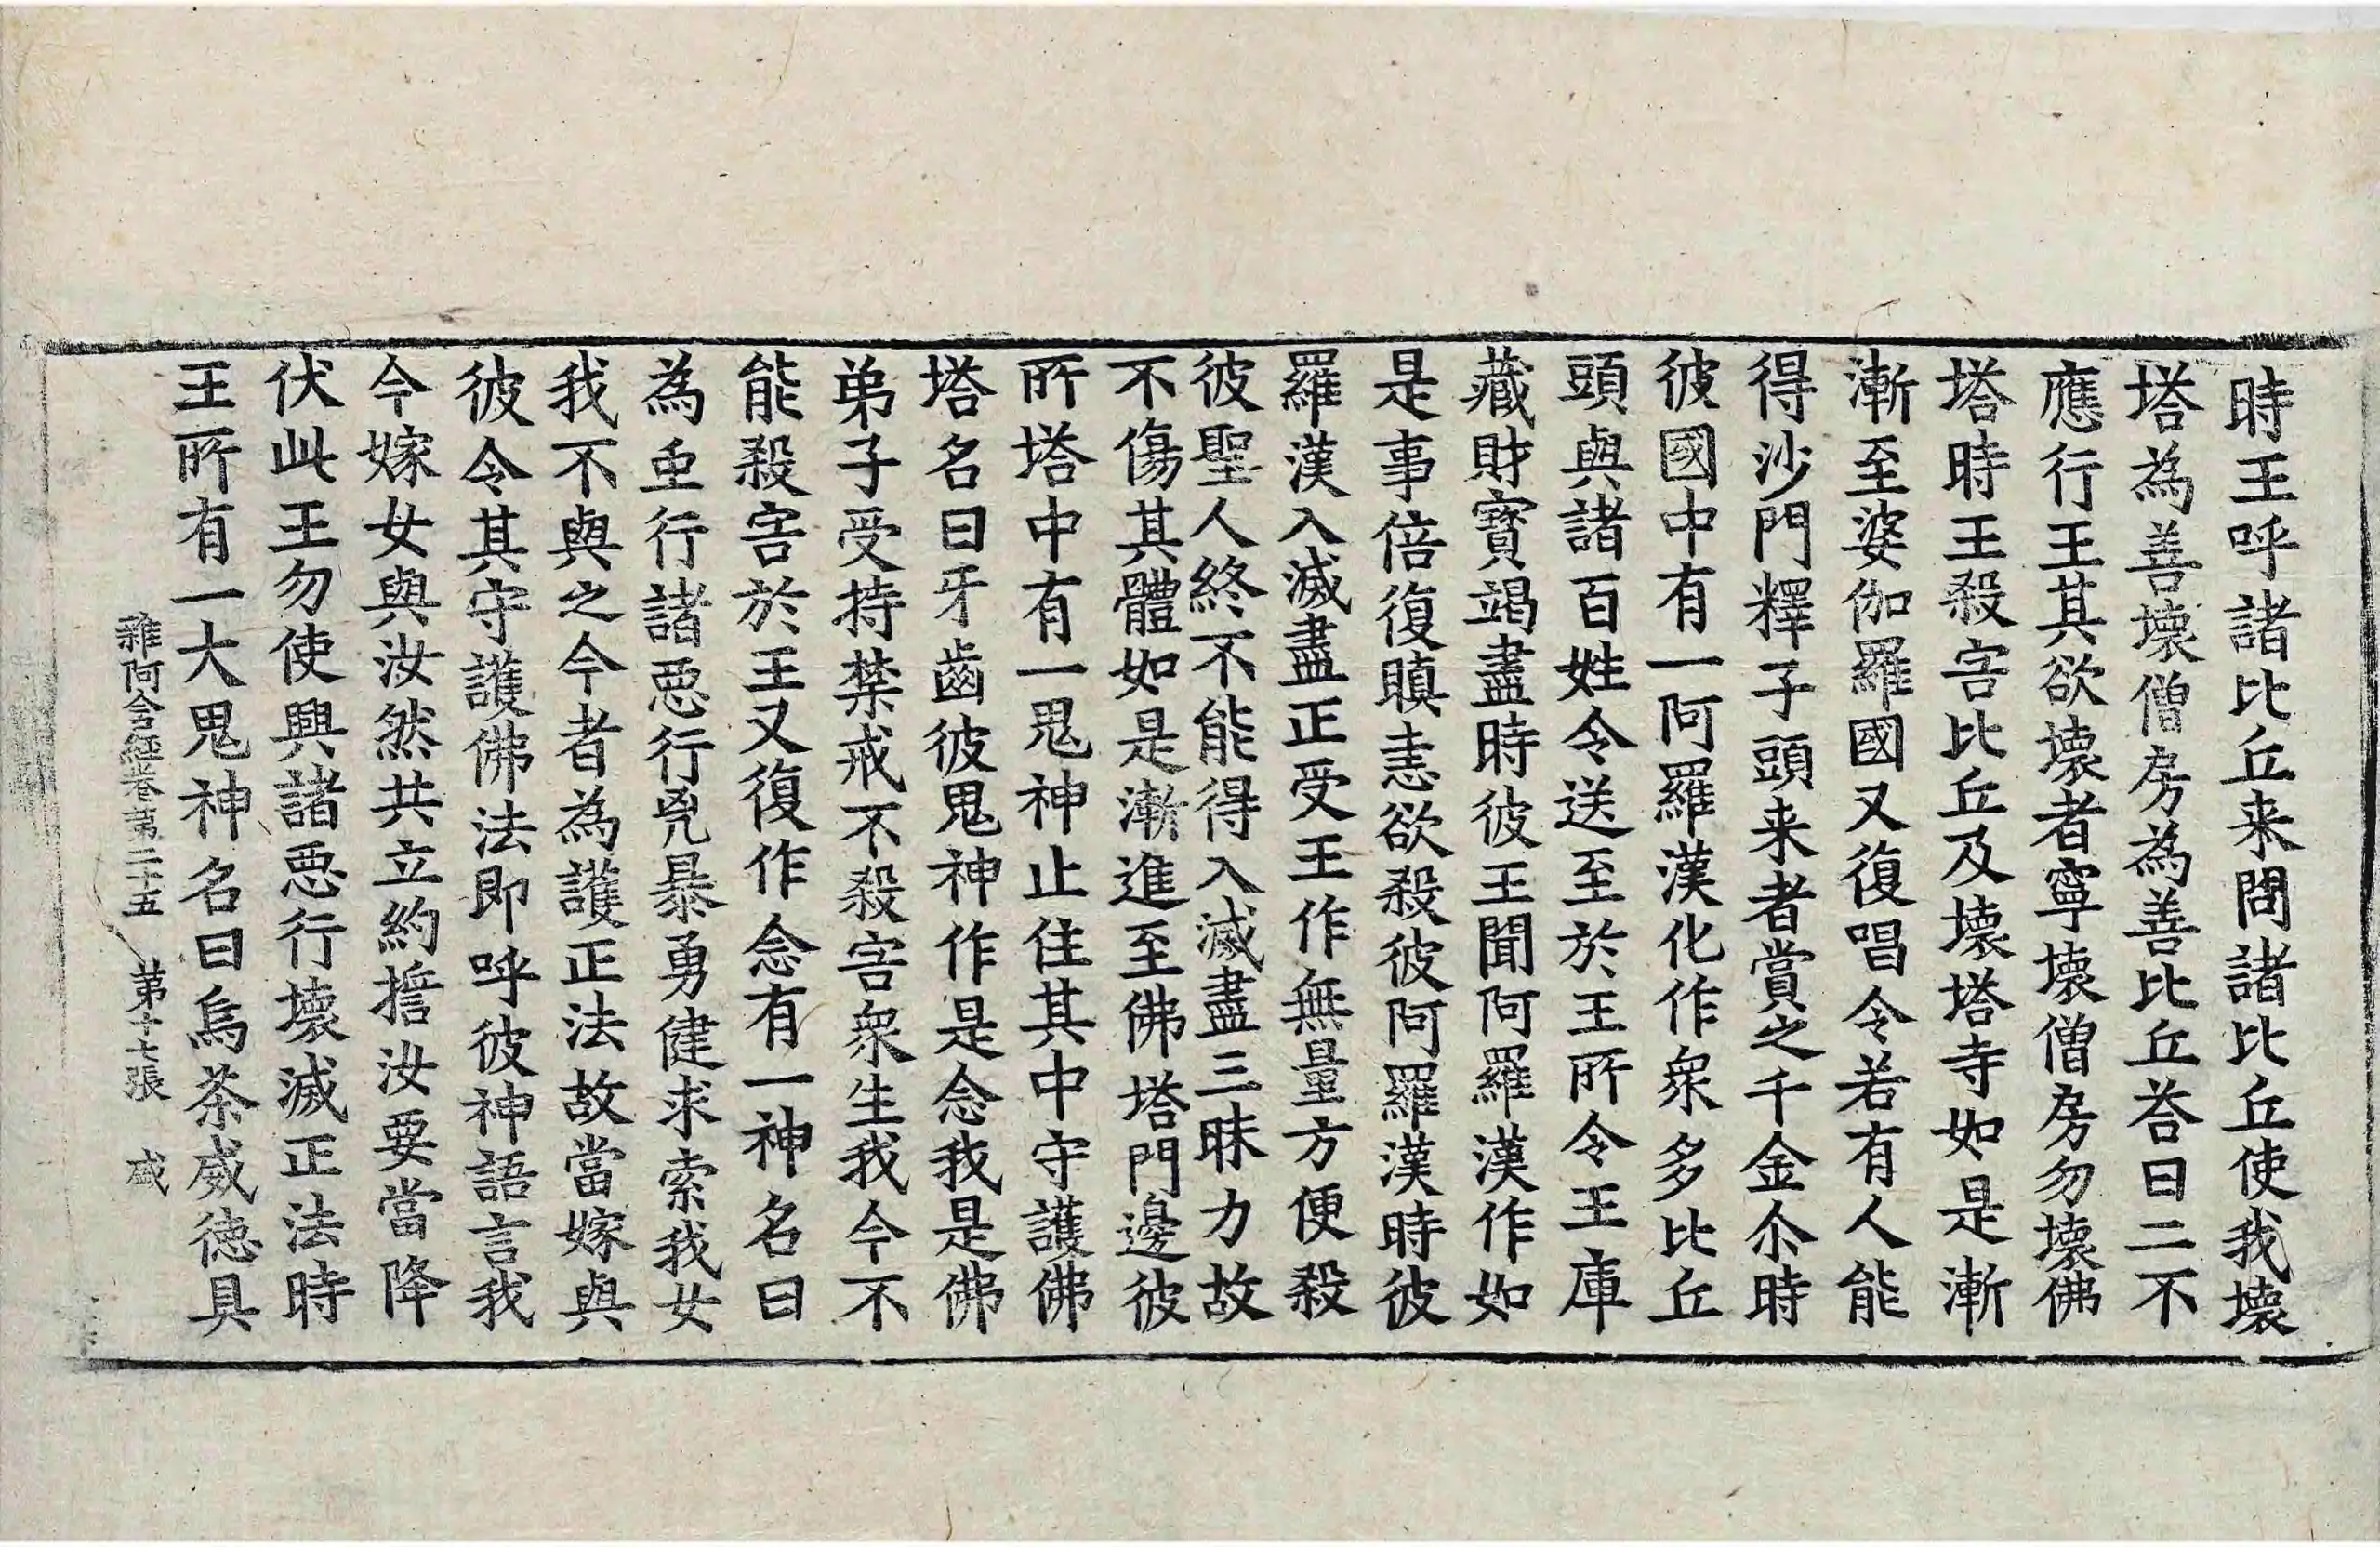 時王呼諸比丘来問諸比丘使我壞
塔為善壞僧房為善比丘荅曰二不
應行王其欲壞者寧壞僧房勿壞佛
塔時王殺害比丘及壞塔寺如是漸
漸至婆伽羅國又復唱令若有人能
得沙門釋子頭来者賞之千金尒時
彼國中有一阿羅漢化作衆多比丘
頭與諸百姓令送至於王所令王庫
藏財寳竭盡時彼王聞阿羅漢作如
是事倍復瞋恚欲殺彼阿羅漢時彼
羅漢入滅盡正受王作無量方便殺
彼聖人終不能得入滅盡三昧力故
不傷其體如是漸進至佛塔門邊彼
所塔中有一鬼神止住其中守護佛
塔名曰牙齒彼鬼神作是念我是佛
弟子受持禁戒不殺害衆生我今不
能殺害於王又復作念有一神名曰
為虫行諸惡行兇暴勇健求索我女
我不與之今者為護正法故當嫁與
彼令其守護佛法即呼彼神語言我
今嫁女與汝然共立約擔汝要當降
伏此王勿使興諸惡行壞滅正法時
王所有一大鬼神名曰烏茶威徳具
雜阿含經卷第二十五 第十七張 咸